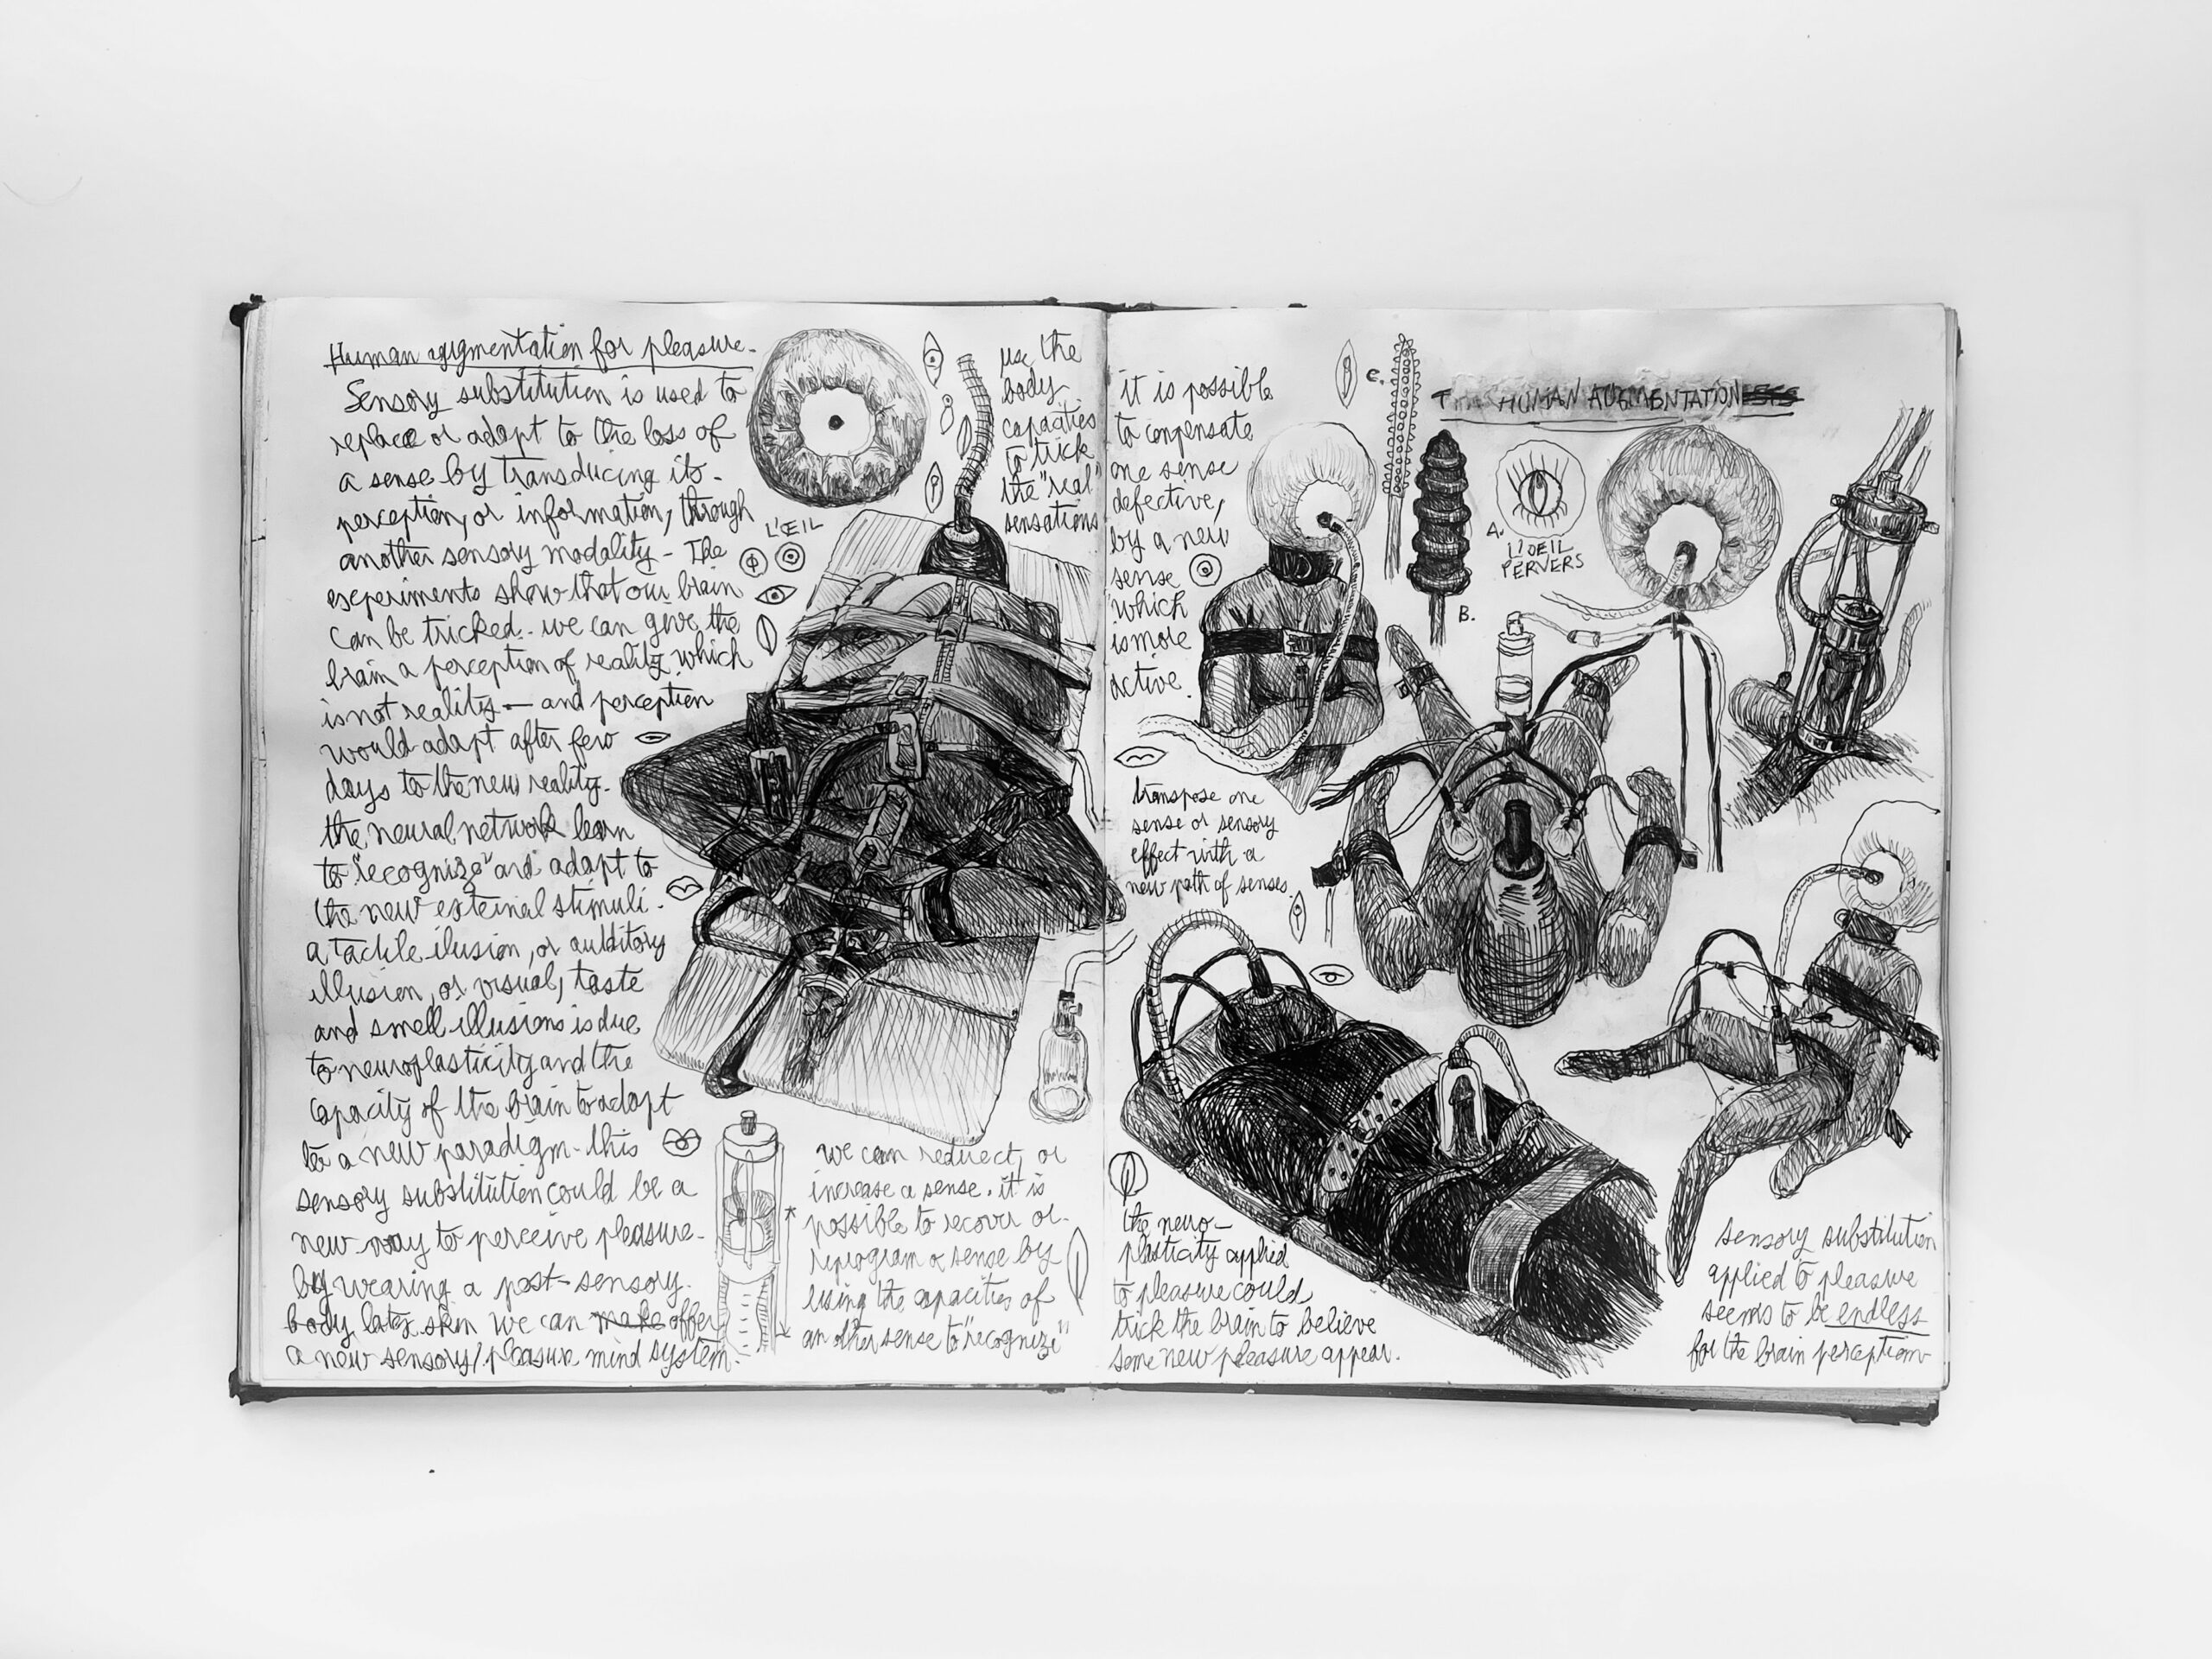 Human augmentation for pleasure-
Sensory substitution is used to
replace or adapt to the loss of
a sense by transducing its-
perception, or information, through
another sensory modality- The
experiments show that our brain
can be tricked. we can give the
brain a perception of reality which
is not reality — and perception
would adapt after few
days to the new reality-
the neural network learn
to "recognize" and adapt to
the new external stimuli.
a tactile ilusion, or auditory
illusion, or visual, taste
and smell illusions is due
to neuroplasticity and the
capacity of the brain to adapt
to a new paradigm- this
sensory substitution could be a
new way to perceive pleasure-
by wearing a post-sensory-
body latex skin we can make offer
a new sensory/pleasure mind system-
L'ŒIL
use the
body
capacities
to trick
the "real"
sensations
we can redirect, or
increase a sense. it is
possible to recover or-
reprogram a sense by
using the capacities of
an other sense to "recognize"
it is possible
to compensate
one sense
defective,
by a new
sense
which
is more
active.
transpose one
sense or sensory
effect with a
new path of senses.
C.
B.
A.
L'OEIL
PERVERS
HUMAN AUGMENTATION
the neuro-
plasticity applied
to pleasure could
trick the brain to believe
some new pleasure appear.
sensory substitution
applied to pleasure
seems to be endless
for the brain perception-